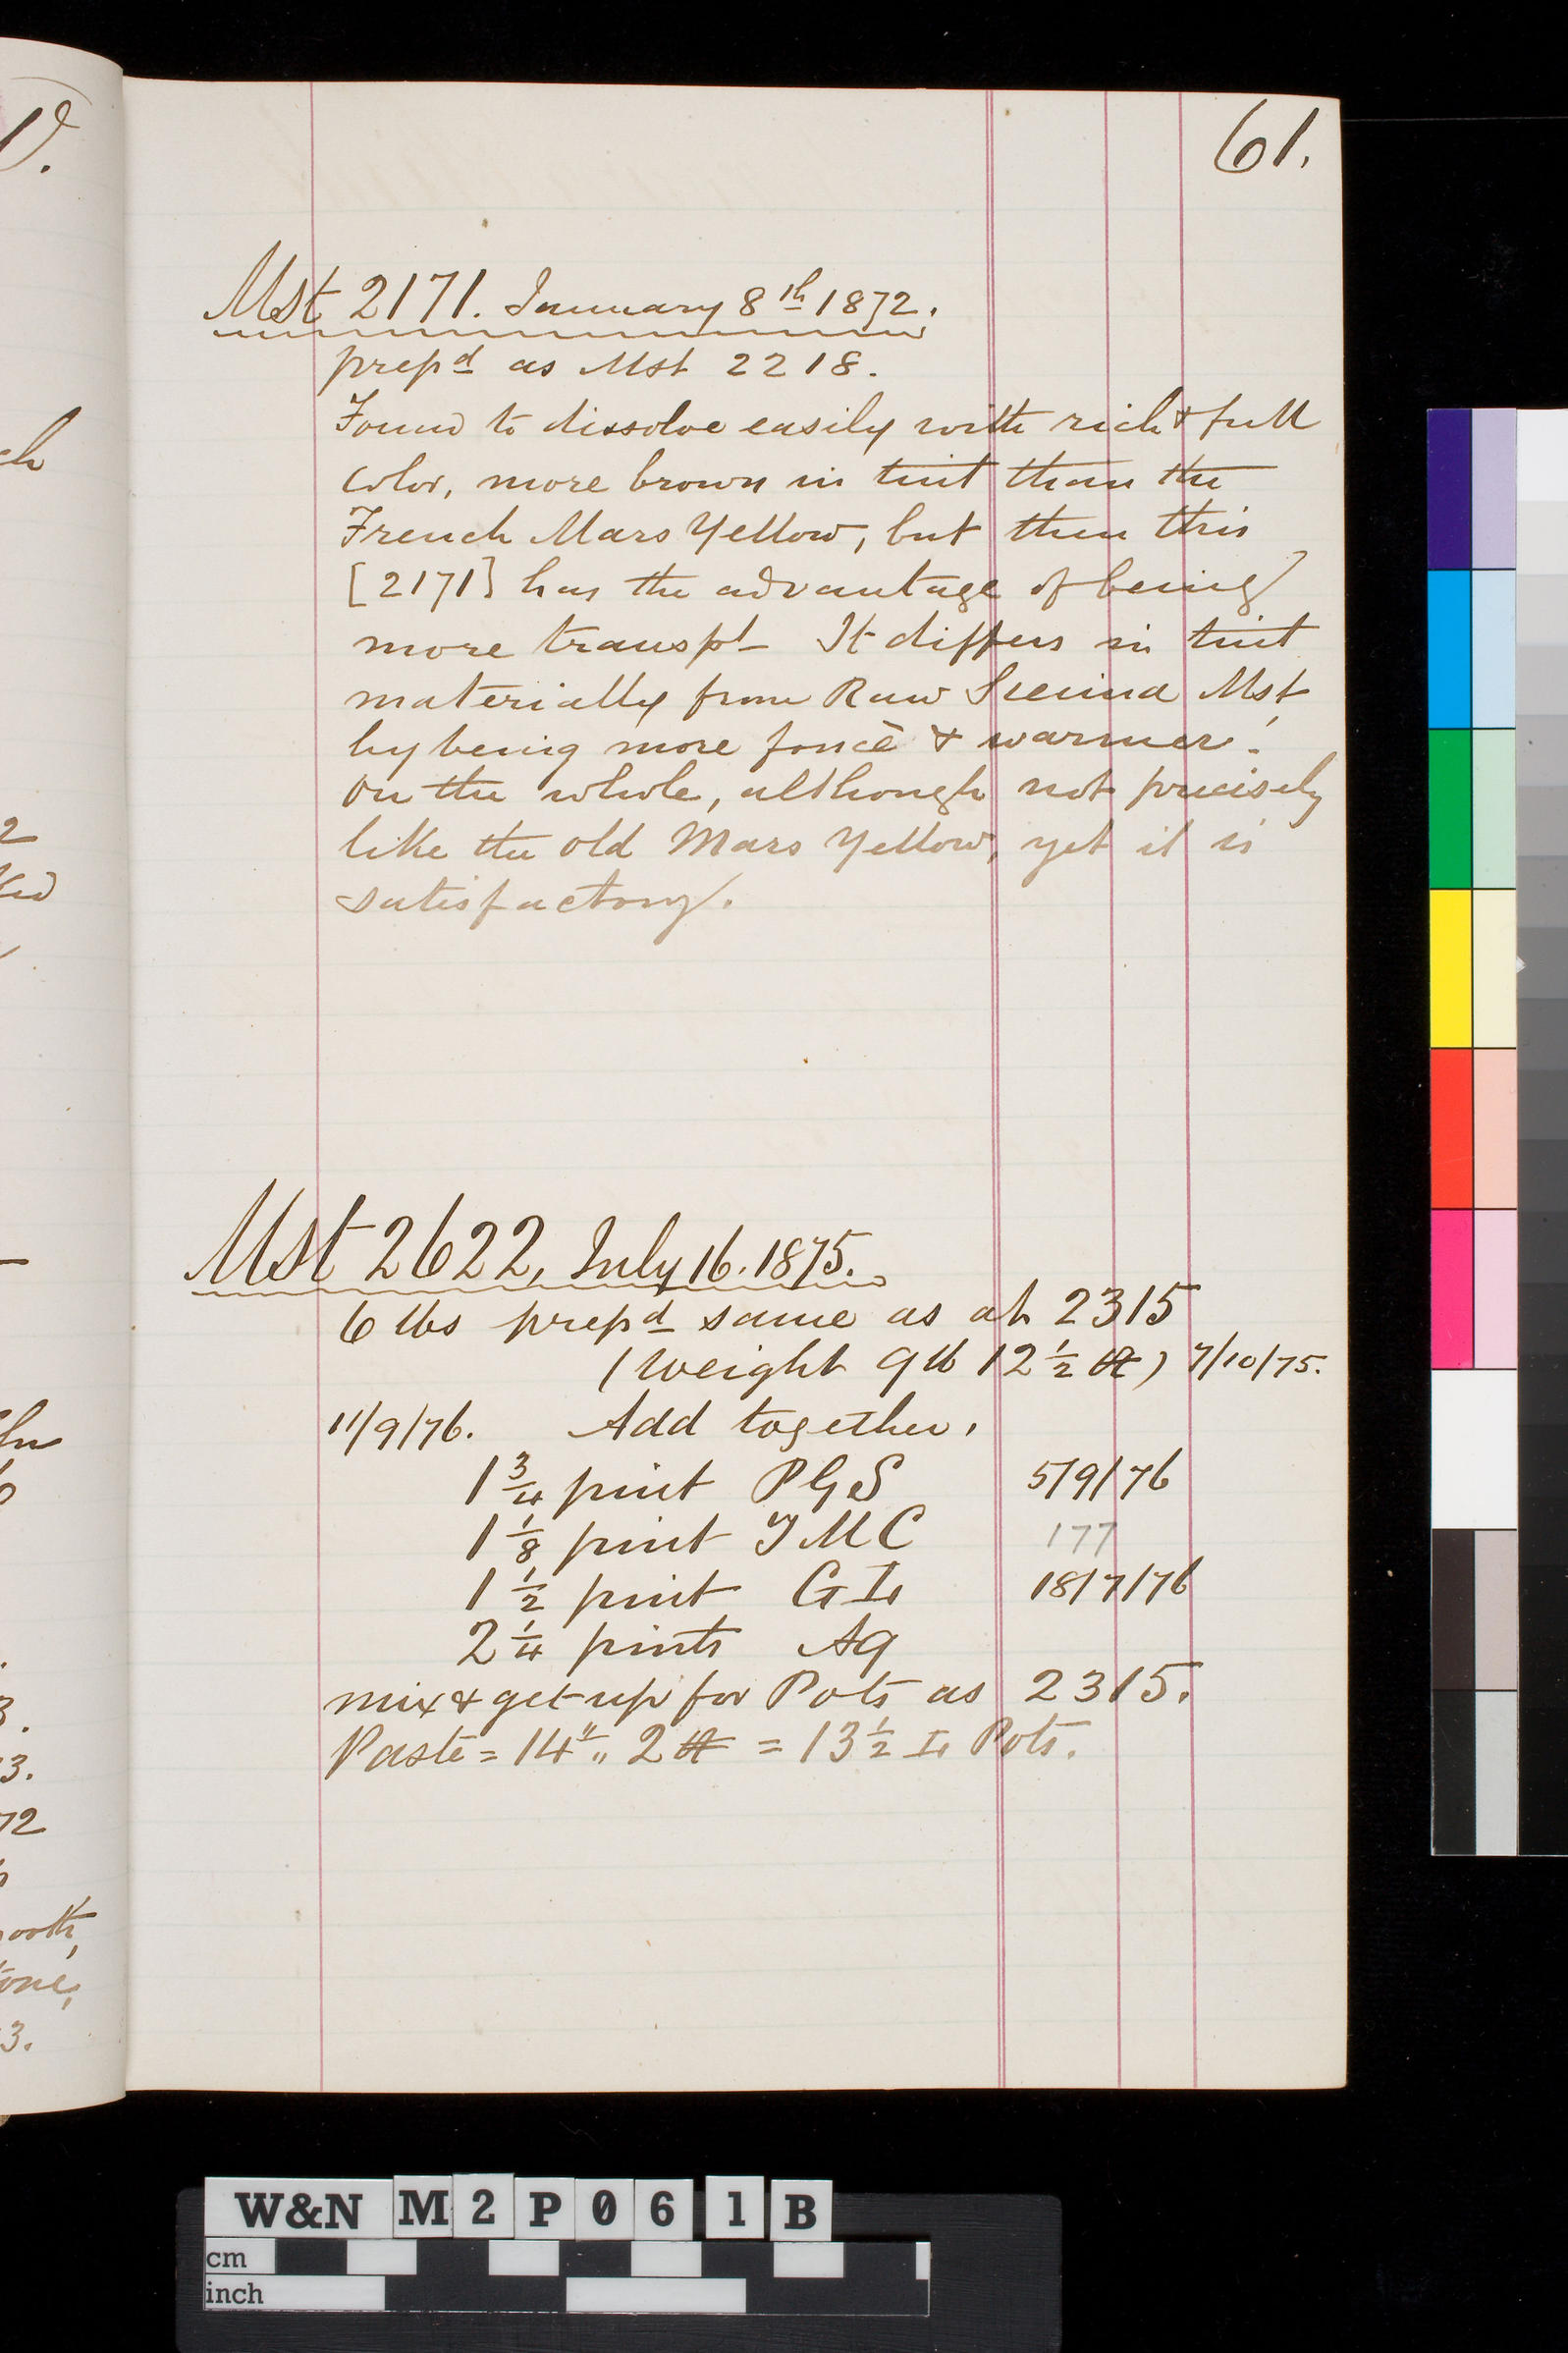 61.
Mst 2171. January 8th 1872.
prepd as Mst 2218.
Found to dissolve easily with rich & full
color, more brown in tint than the
French Mars Yellow, but then this
[2171] has the advantage of being
more transpt It differs in tint
materially from Raw Sienna Mst
by being more foncé & warmer.
On the whole, although not precisely
like the old Mars Yellow, yet it is
satisfactory.
Mst 2622, July 16. 1875.
6 lbs prepd same as at 2315
(weight 9 lb 12 1/2 ) 7/10/75.
11/9/76. Add together.
1 3/4 pint PGS 5/9/76
1 1/8 pint MC 177
1 1/2 pint G 18/7/76
2 1/4 pints Aq
mix & get up for Pots as 2315.
Paste = 14 " 2 = 13 1/2 Pots.
W&N M2P061B
cm
inch